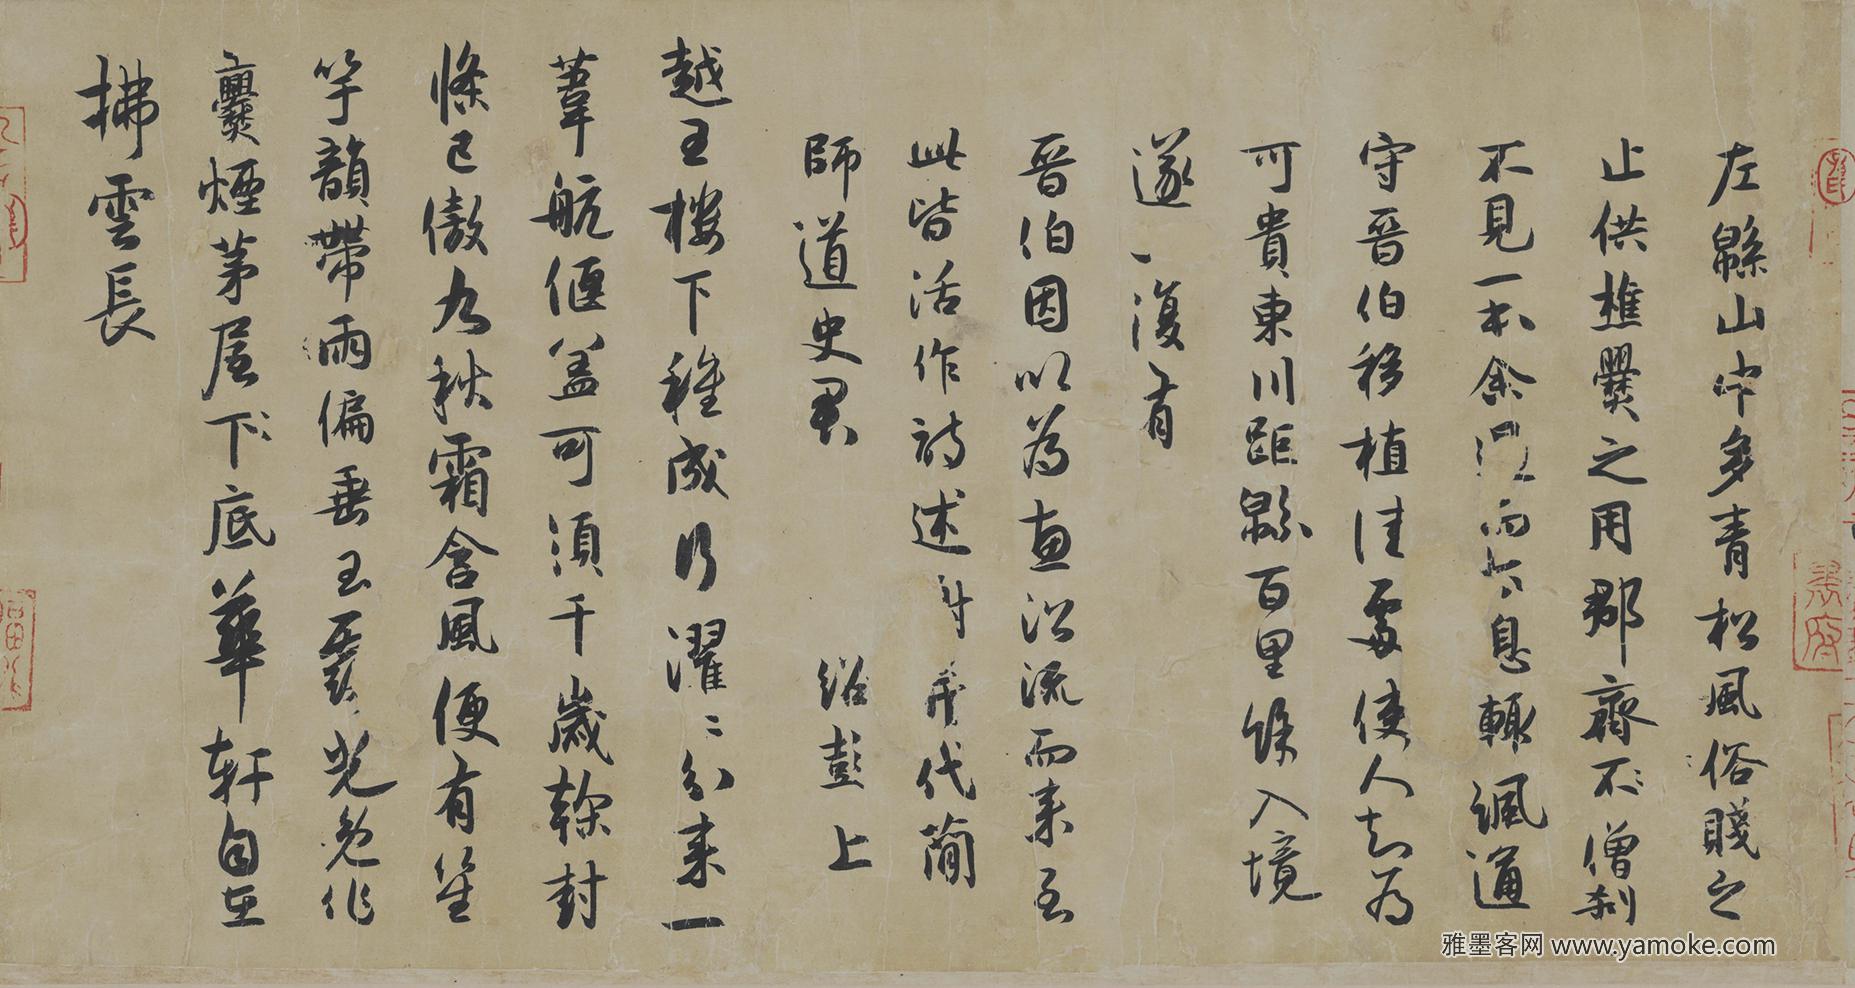 左緜山中多青松風俗賤之
止供樵爨之用郡齋不僧刹
不見一本余過而太息輒諷通
守晉伯移植佳處使人知為
可貴東川距緜百里餘入境
遂不復有
晉伯因以為惠沿流而來至
此皆活作詩述謝并代簡
師道史君 紹彭上
越王樓下種成行濯〻分來一
葦航偃蓋可須千歲幹封
條已傲九秋霜含風便有笙
竽韻帶雨偏垂玉露光免作
爨煙茅屋下底華軒自在
拂雲長
雅墨客网 www.yamoke.com